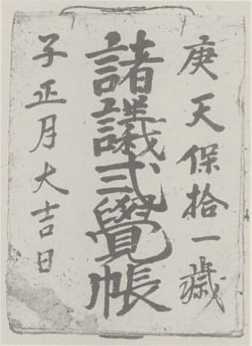 庚天保拾一歳
諸議弐覺帳
子正月大吉日